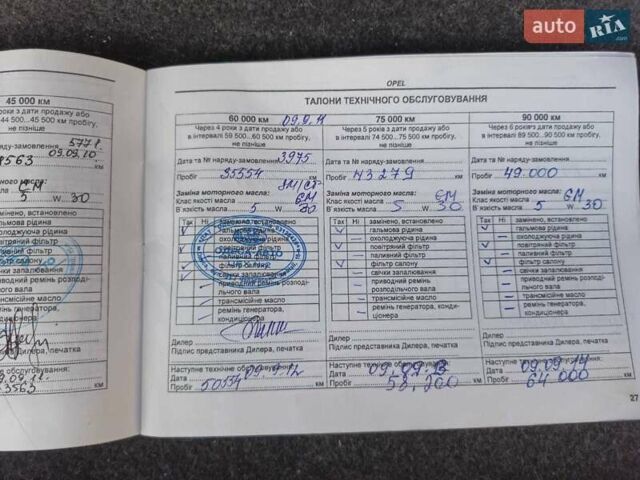 auto RIA.com
OPEL
ТАЛОНИ ТЕХНІЧНОГО ОБСЛУГОВУВАННЯ
45 000 км
роки з дати продажу або
44 500...45 500 км пробігу,
не пізніше
наряду-замовлення 5771
09.09.10
8563
моторного масла:
GM
5 W 30
замінено, встановлено
гальмова рідина
охолоджуюча рідина
повітряний фільтр
паливний фільтр
фільтр салону
свічки запалювання
приводний ремінь розподі-
льчого вала
трансмісійне масло
ремінь генератора,
кондиціонера
Дилера, печатка
обслуговування:
09.09.11.
3563 км
60 000 км 09.9.11
Через 4 роки з дати продажу або
в інтервалі 59 500...60 500 км пробігу,
не пізніше
Дата та № наряду-замовлення 3975
Пробіг 35554 км
Заміна моторного масла:
Клас якості масла GM
В`язкість масла 5 W 30
Так Ні замінено, встановлено
гальмова рідина
охолоджуюча рідина
повітряний фільтр
паливний фільтр
фільтр салону
свічки запалювання
приводний ремінь розподі-
льчого вала
трансмісійне масло
ремінь генератора,
кондиціонера
Дилер
Підпис представника Дилера, печатка
Наступне технічне обслуговування:
Дата 09.9.12
Пробіг 50554 км
75 000 км
Через 5 років з дати продажу або
в інтервалі 74 500...75 500 км пробігу,
не пізніше
Дата та № наряду-замовлення
Пробіг 43279 км
Заміна моторного масла:
Клас якості масла GM
В`язкість масла 5 W 30
Так Ні замінено, встановлено
гальмова рідина
охолоджуюча рідина
повітряний фільтр
паливний фільтр
фільтр салону
свічки запалювання
приводний ремінь
розподільчого вала
трансмісійне масло
ремінь генератора, конди-
ціонера
Дилер
Підпис представника Дилера, печатка
Наступне технічне обслуговування:
Дата 09.09.13
Пробіг 58,200 км
90 000 км
Через 6 років з дати продажу або
в інтервалі 89 500...90 500 км пробігу,
не пізніше
Дата та № наряду-замовлення
Пробіг 49.000 км
Заміна моторного масла:
Клас якості масла GM
В`язкість масла 5 W 30
Так Ні замінено, встановлено
гальмова рідина
охолоджуюча рідина
повітряний фільтр
паливний фільтр
фільтр салону
свічки запалювання
приводний ремінь розподі-
льчого вала
трансмісійне масло
ремінь генератора,
кондиціонера
Дилер
Підпис представника Дилера, печатка
Наступне технічне обслуговування:
Дата 09.09.14
Пробіг 64 000 км
27